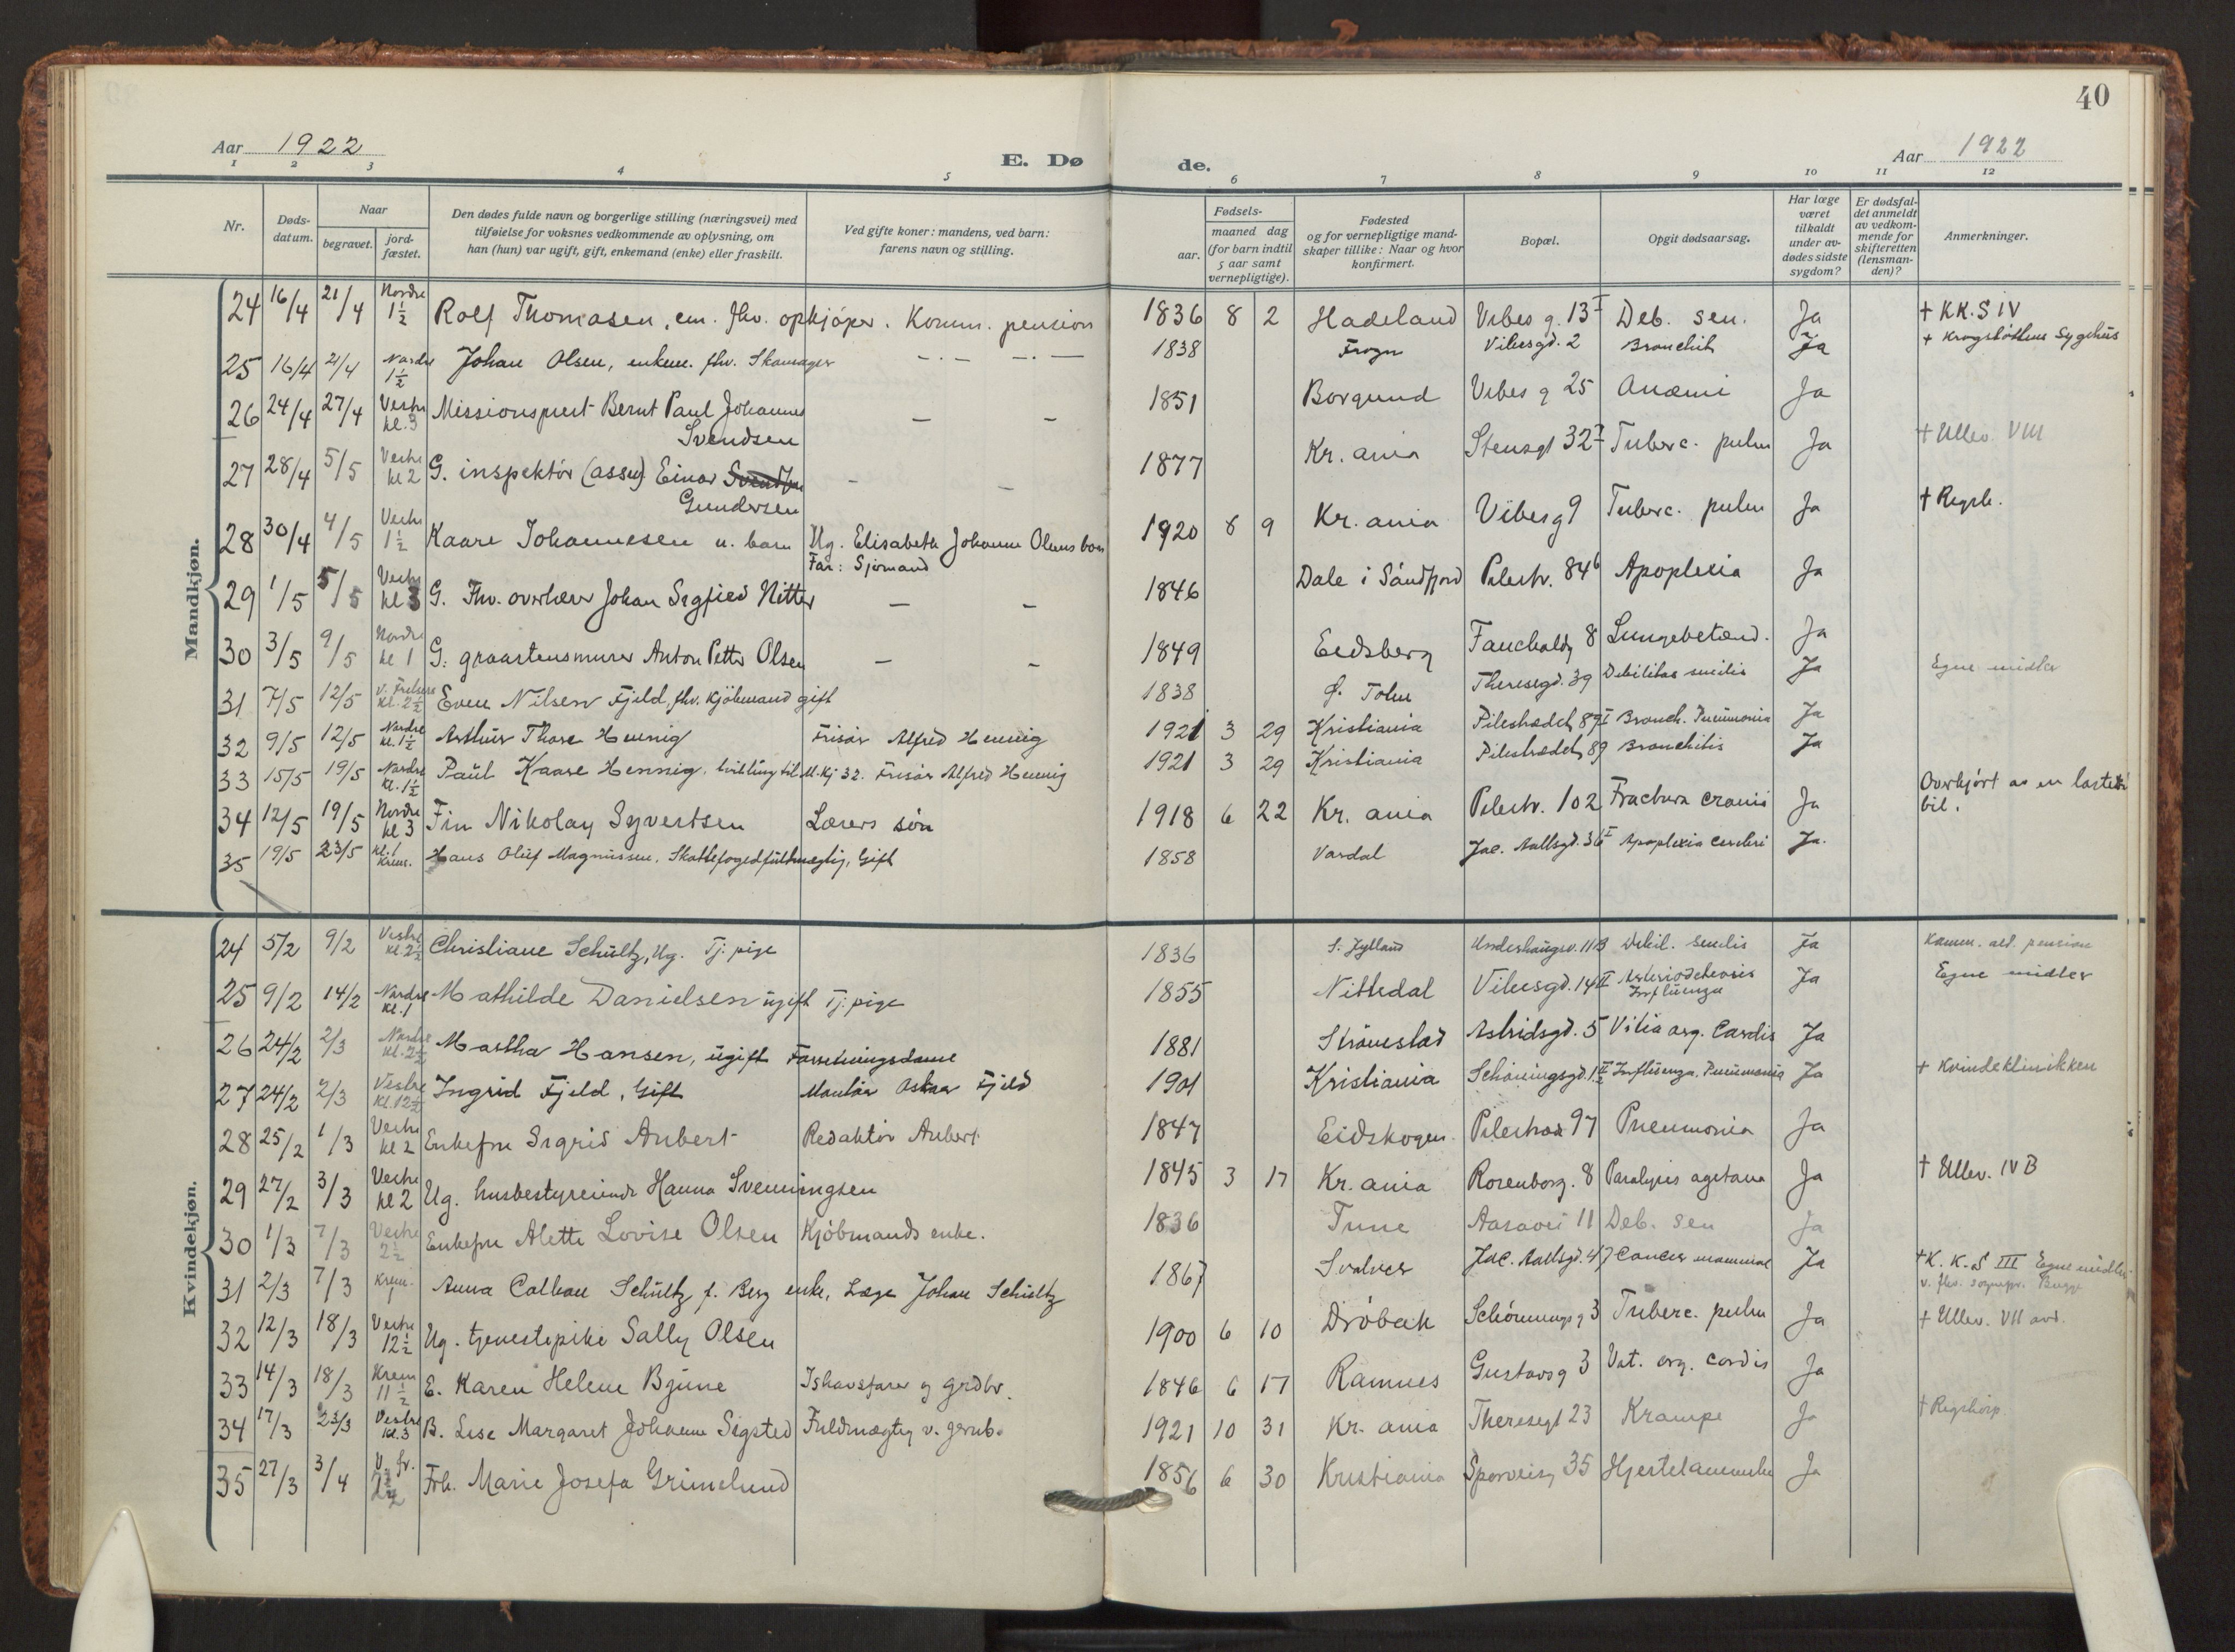 40
Aar 1922
E. Dø de.
Aar 1922
1 2 3 4 5 6 7 8 9 10 11 12
Nr. Døds-datum. Naar begravet. jord-fæstet. Den dødes fulde navn og borgerlige stilling (næringsvei) med tilføielse for voksnes vedkommende av oplysning, om han (hun) var ugift, gift, enkemand (enke) eller fraskilt. Ved gifte koner: mandens, ved barn: farens navn og stilling. Fødsels- aar. maaned dag (for barn indtil 5 aar samt vernepligtige). Fødested og for vernepligtige mand-skaper tillike: Naar og hvor konfirmert. Bopæl. Opgit dødsaarsag. Har læge været tilkaldt under av-dødes sidste sygdom? Er dødsfal-det anmeldt av vedkom-mende for skifteretten (lensman-den)? Anmerkninger.
Mandkjøn.
24 16/4 21/4 Nordre 1½ Rolf Thomasen, em. fhv. opkjøper. Komm. pension 1836 8 2 Hadeland Vibes g. 13 I Deb. sen. Ja + KK.S IV
25 16/4 21/4 Nordre 1½ Johan Olsen, enkem. fhv. Skomager — . — — . — 1838 Frogn Vibesgd. 2 Bronchit Ja + Krogstøttens Sygehus
26 24/4 27/4 Vestre kl. 3 Missionsprest Bernt Paul Johannes Svendsen — — 1851 Borgund Vibes g 25 Anæmi Ja
27 28/4 5/5 Vestre kl 2 G. inspektør (assu) Einar Gundersen — — 1877 Kr. ania Stensgt 32 Tuberc. pulm Ja + Ullev. VIII
28 30/4 4/5 Vestre 1½ Kaare Johannesen u. barn Ug. Elisabeth Johanne Olsens barn Far: Sjømand 1920 8 9 Kr. ania Vibesg 9 Tuberc. pulm Ja + Rigsh.
29 1/5 5/5 Vestre kl 3 G. Fhv. overlærer Johan Sigfied Nitter — — 1846 Dale i Søndfjord Pilestr. 84 b Apoplexia Ja
30 3/5 9/5 Nordre kl 1 G. graastensmurer Anton Petter Olsen — — 1849 Eidsberg Fauchaldg 8 Lungebetænd. Ja
31 7/5 12/5 V. Frelsers kl. 2½ Even Nilsen Fjeld, fhv. Kjøbmand gift 1838 Ø. Toten Theresegd. 39 Debilitas senilis Ja Egne midler
32 9/5 12/5 Nordre kl. 1½ Arthur Thore Hennig Frisør Alfred Hennig 1921 3 29 Kristiania Pilestrædet 89 I Bronch. Pneumonia Ja
33 15/5 19/5 Nordre kl. 1½ Paul Kaare Hennig, tvilling til M.kj 32. Frisør Alfred Hennig 1921 3 29 Kristiania Pilestrædet 89 Bronchitis Ja
34 12/5 19/5 Nordre kl 3 Fin Nikolay Syvertsen Lærers søn 1918 6 22 Kr. ania Pilestr. 102 Fractura cranii Ja Overkjørt av en laste bil.
35 19/5 23/5 kl. 1 Krem. Hans Oluf Magnussen, Skattefogedfuldmægtig, Gift 1858 Vardal Jac. Aallsgd. 36 I Apoplexia cerebri Ja.
Kvindekjøn.
24 5/2 9/2 Vestre kl 2½ Christiane Schultz, Ug. Tj. pige 1836 S. Jylland Underhaugsv. 11 B Debil. senilis Ja Komm. ald. pension
25 9/2 14/2 Nordre kl. 1 Mathilde Danielsen ugift Tj. pige 1855 Nittedal Vibesgd. 14 II Arteriosclerosis Influenza Ja Egne midler
26 24/2 2/3 Nordre kl. 2½ Martha Hansen, ugift Forretningsdame 1881 Strömstad Astridsgd. 5 Vitia org. Cordis Ja
27 24/2 2/3 Vestre kl. 12½ Ingrid Fjeld, Gift Montør Oskar Fjeld 1901 Kristiania Schøningsgd. 1 II Influenza, Pneumonia Ja + Kvindeklinikken
28 25/2 1/3 Vestre kl 2 Enkefru Sigrid Aubert Redaktør Aubert 1847 Eidskogen Pilestræd 97 Pneumonia Ja
29 27/2 3/3 Vestre kl 2 Ug. husbestyrerinde Hanna Svenningsen 1845 3 17 Kr. ania Rosenborg. 8 Paralysis agitans Ja + Ullev. IV B
30 1/3 7/3 Vestre 2½ Enkefru Alette Lovise Olsen Kjøbmands enke. 1836 Tune Aasavei 11 Deb. sen Ja
31 2/3 7/3 Krem. 1 Anna Cathan Schultz f. Berg enke, Læge Johan Schultz 1867 Svolvær Jac. Aallsgd. 47 Cancer mammae Ja + K. K. S III Egne midler
32 12/3 18/3 Vestre 12½ Ug. tjenestepike Sally Olsen 1900 6 10 Drøbak Schønningsg 3 Tuberc. pulm Ja + Ullev. VII avd.
33 14/3 18/3 Krem 11½ E. Karen Helene Bjune Ishavsfarer og grdbr. 1846 6 17 Ramnes Gustavsg 3 Vit. org. cordis Ja
34 17/3 23/3 Vestre kl. 3 B. Lise Margaret Johanne Sigsted Fuldmægtig v. jernb. 1921 10 31 Kr. ania Theresegt 23 Krampe Ja + Rigshosp.
35 27/3 3/4 V. fr. Frk. Marie Josefa Grimelund 1856 6 30 Kristiania Sporveisg 35 Hjertelammelse Ja